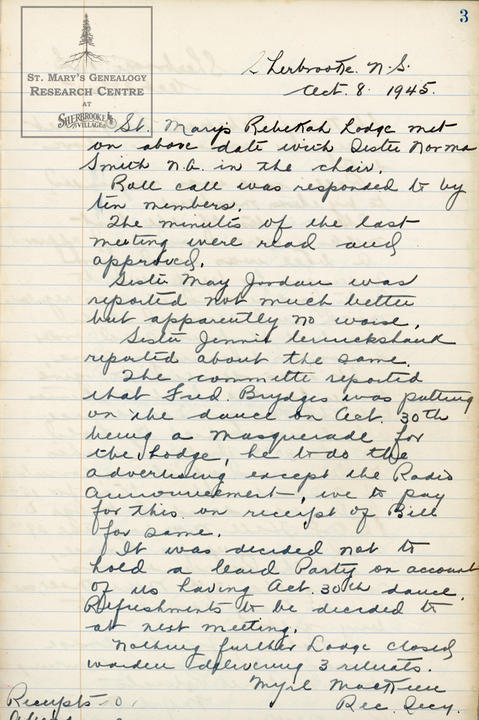 3
ST. MARY'S GENEALOGY
RESEARCH CENTRE
AT
SHERBROOKE
VILLAGE
Sherbrooke. N.S.
Oct. 8. 1945.
St. Marys Rebekah Lodge met
on above date with Sister Norma
Smith N.G. in the chair.
Roll call was responded to by
ten members.
The minutes of the last
meeting were read and
approved.
Sister May Jordan was
reported not much better
but apparently no worse.
Sister Jennie Cruickshank
reported about the same.
The committe reported
that Fred. Brydges was putting
on the dance on Oct. 30th
being a masquerade for
the Lodge, he to do the
advertising except the Radio
Announcement, we to pay
for this on receipt of Bill
for same.
It was decided not to
hold a Card Party on account
of us having Oct. 30th dance.
Refreshments to be decided to
at next meeting.
Nothing further Lodge closed
warden delivering 3 retuats.
Myrl MacKeen
Rec. Secy.
Receipts 0.